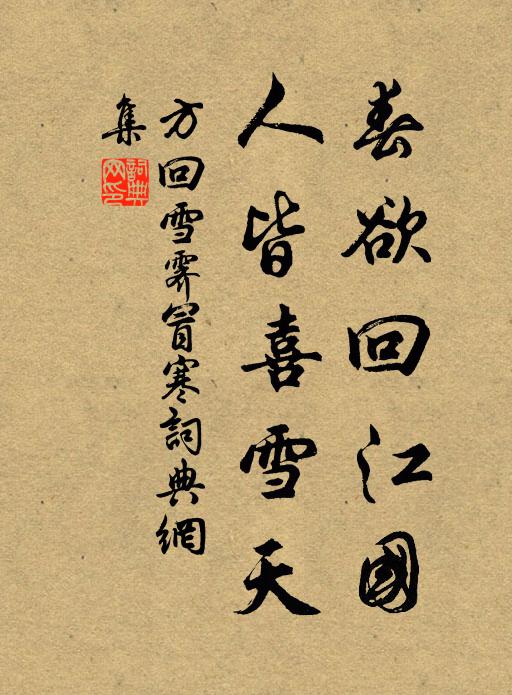 春欲回江國
人皆喜雪天
方回雪霽冒寒詞典網
集
詞典
网印